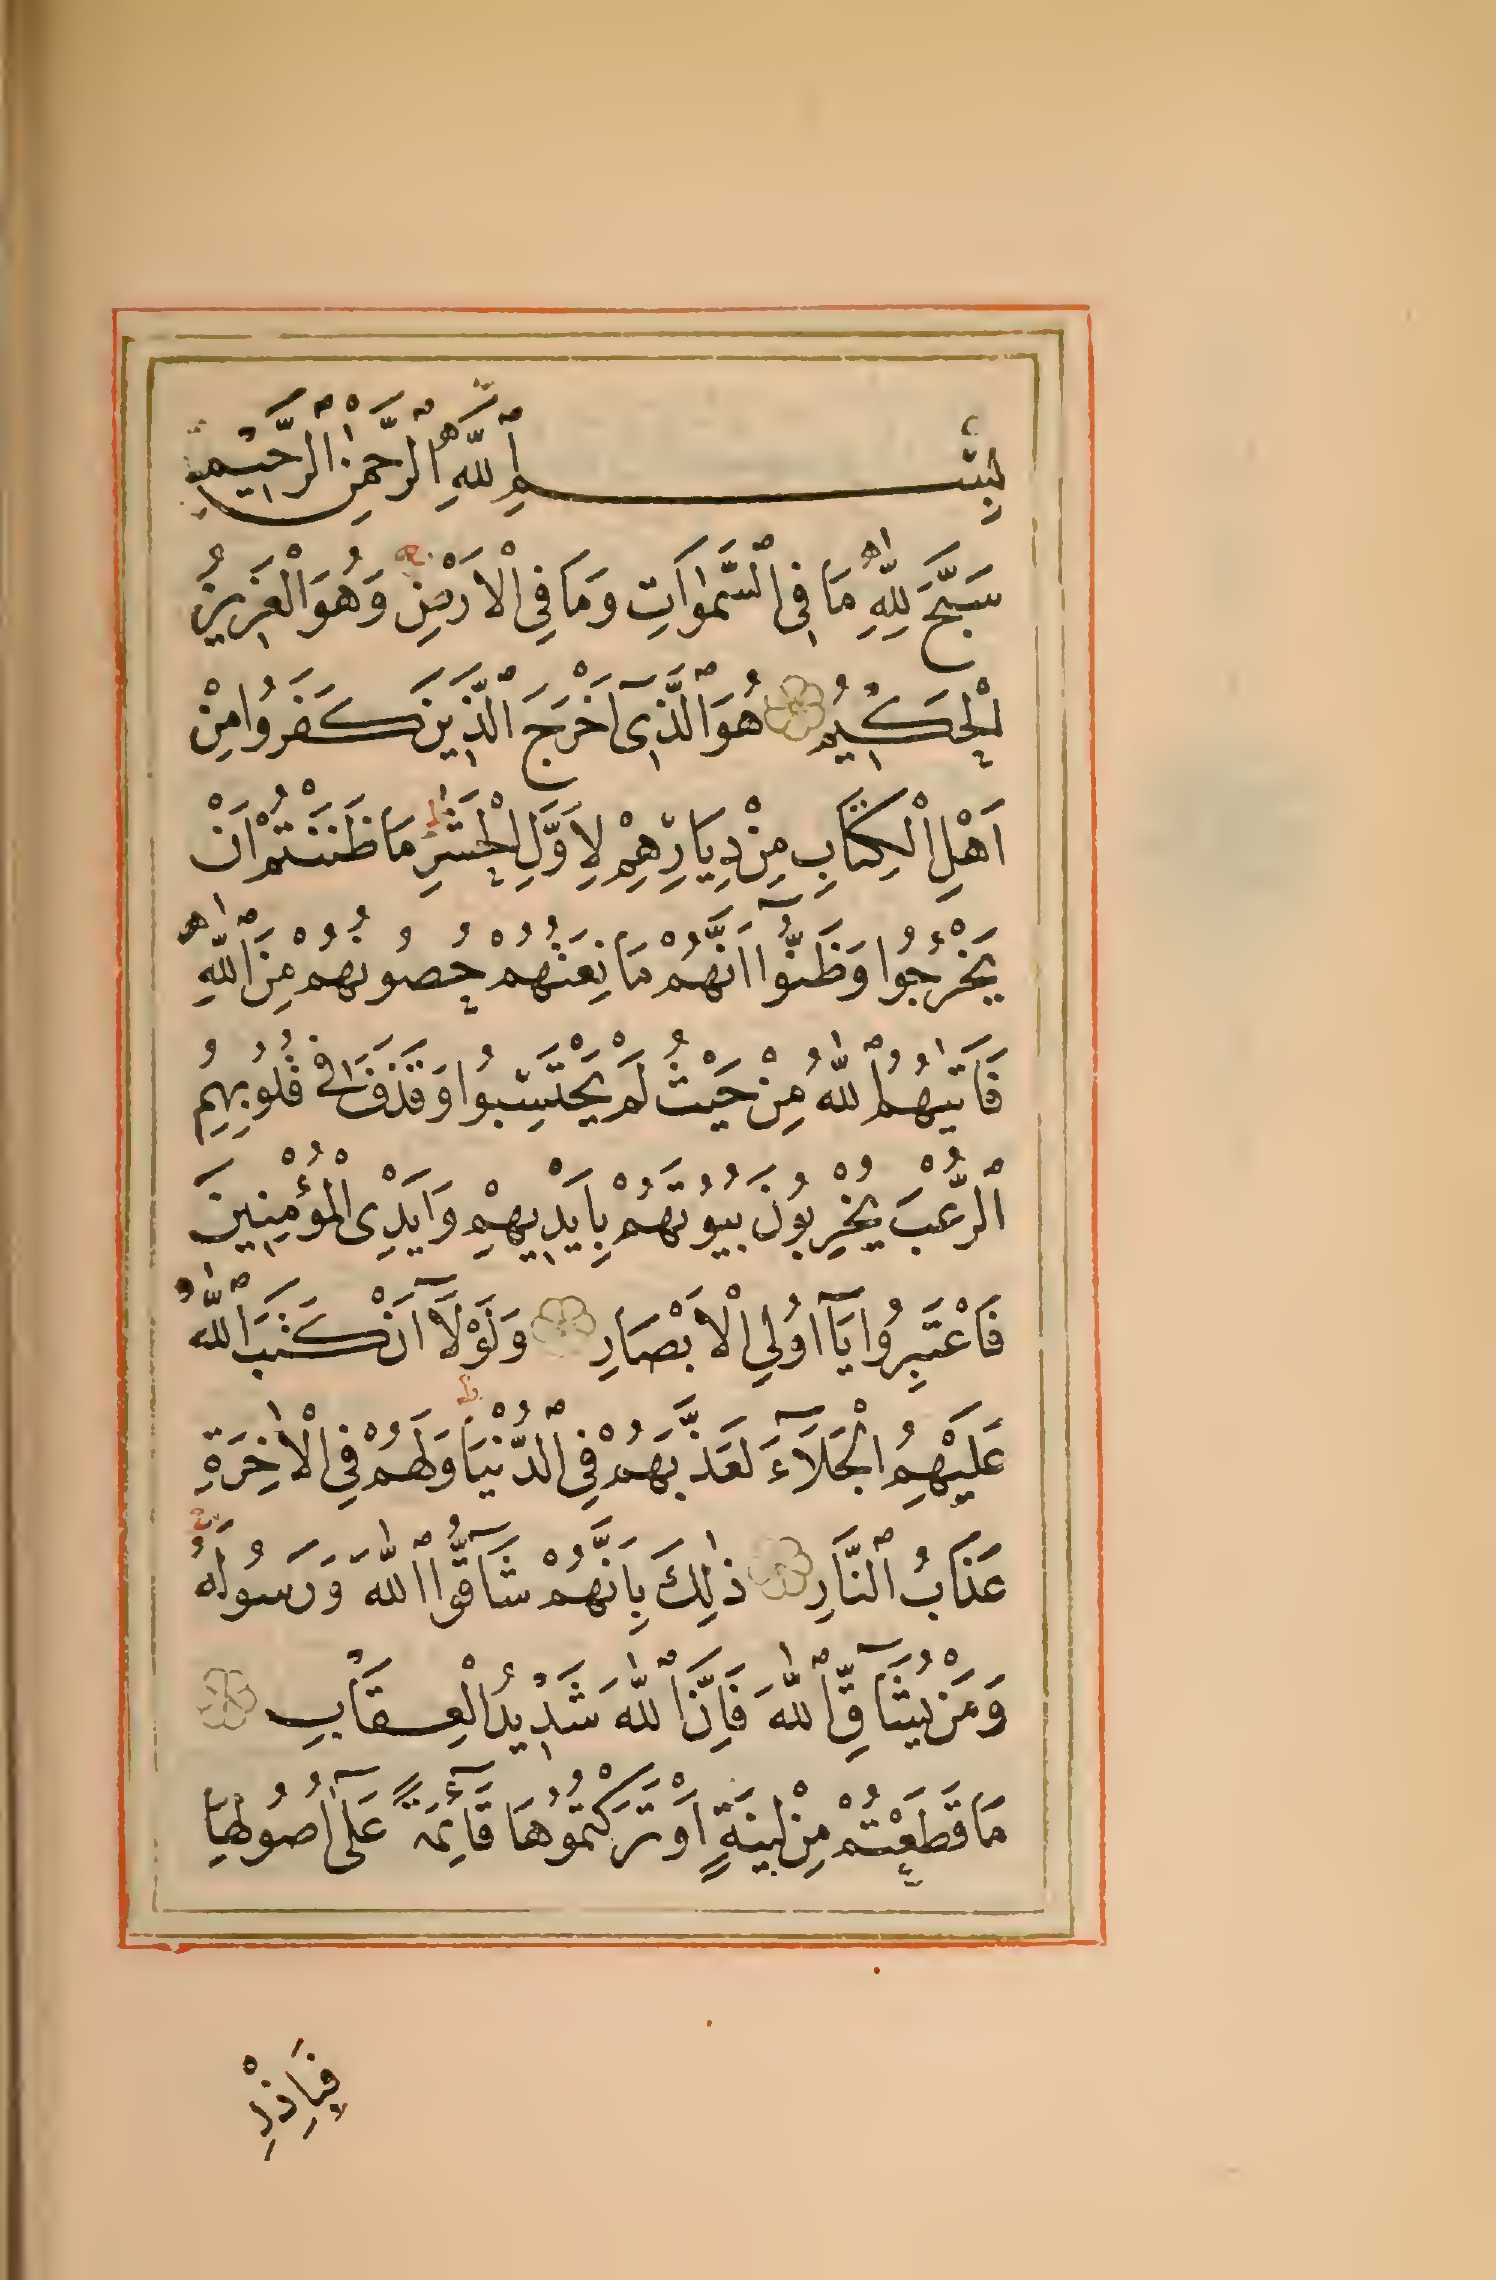 بِسْمِ ٱللّٰهِ ٱلرَّحْمٰنِ ٱلرَّحِيمِ
سَبَّحَ لِلّٰهِ مَا فِى ٱلسَّمٰوَاتِ وَمَا فِى الْاَرْضِ وَهُوَ الْعَزِيزُ
الْحَكِيمُ هُوَ ٱلَّذِٓى اَخْرَجَ ٱلَّذِينَ كَفَرُوا مِنْ
اَهْلِ الْكِتَابِ مِنْ دِيَارِهِمْ لِاَوَّلِ الْحَشْرِ مَا ظَنَنْتُمْ اَنْ
يَخْرُجُوا وَظَنُّٓوا اَنَّهُمْ مَانِعَتُهُمْ حُصُونُهُمْ مِنَ ٱللّٰهِ
فَاَتٰيهُمُ ٱللّٰهُ مِنْ حَيْثُ لَمْ يَحْتَسِبُوا وَقَذَفَ فِى قُلُوبِهِمُ
ٱلرُّعْبَ يُخْرِبُونَ بُيُوتَهُمْ بِاَيْدِيهِمْ وَاَيْدِى الْمُؤْمِنِينَ
فَاعْتَبِرُوا يَٓا اُولِى الْاَبْصَارِ وَلَوْلَٓا اَنْ كَتَبَ ٱللّٰهُ
عَلَيْهِمُ الْجَلَٓاءَ لَعَذَّبَهُمْ فِى ٱلدُّنْيَا وَلَهُمْ فِى الْاٰخِرَةِ
عَذَابُ ٱلنَّارِ ذٰلِكَ بِاَنَّهُمْ شَٓاقُّوا ٱللّٰهَ وَرَسُولَهُ
وَمَنْ يُشَٓاقِّ ٱللّٰهَ فَاِنَّ ٱللّٰهَ شَدِيدُ الْعِقَابِ
مَا قَطَعْتُمْ مِنْ لِينَةٍ اَوْ تَرَكْتُمُوهَا قَٓائِمَةً عَلٰٓى اُصُولِهَا
فَبِاِذْنِ